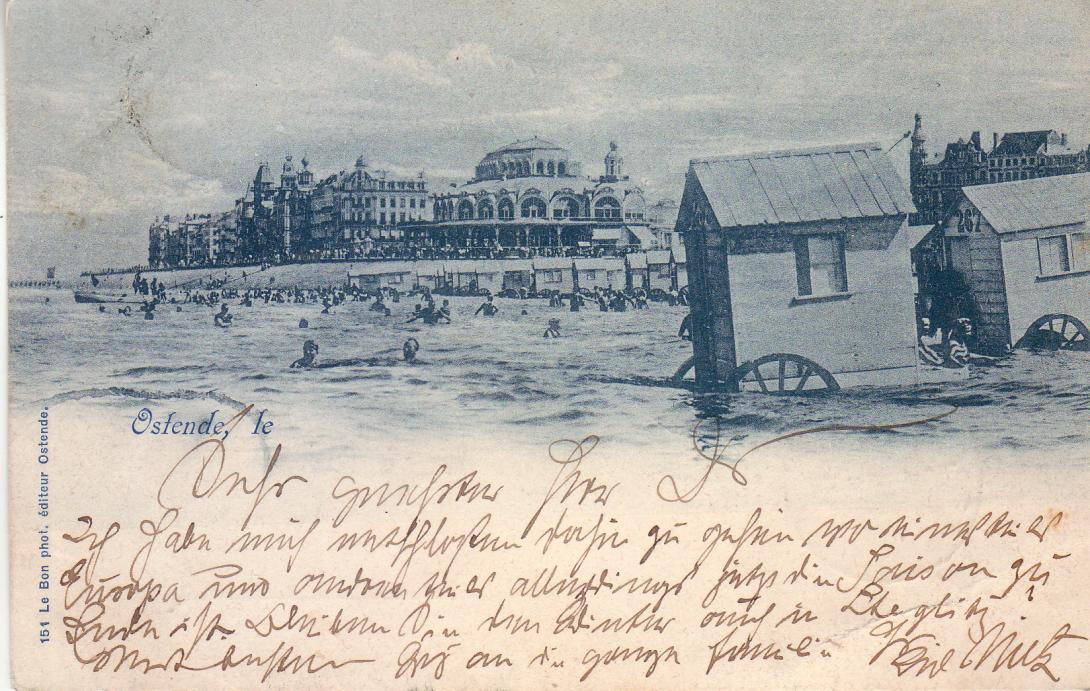 267
Ostende, le
151 Le Bon phot. éditeur Ostende.
Sehr geehrter Herr
Ich habe mich entschlossen dahin zu gehen wo einerseits
Europa und andrerseits allerdings jetzt die Saison zu
Ende ist. Bleiben Sie den Winter auch in Steglitz?
an die ganze Familie